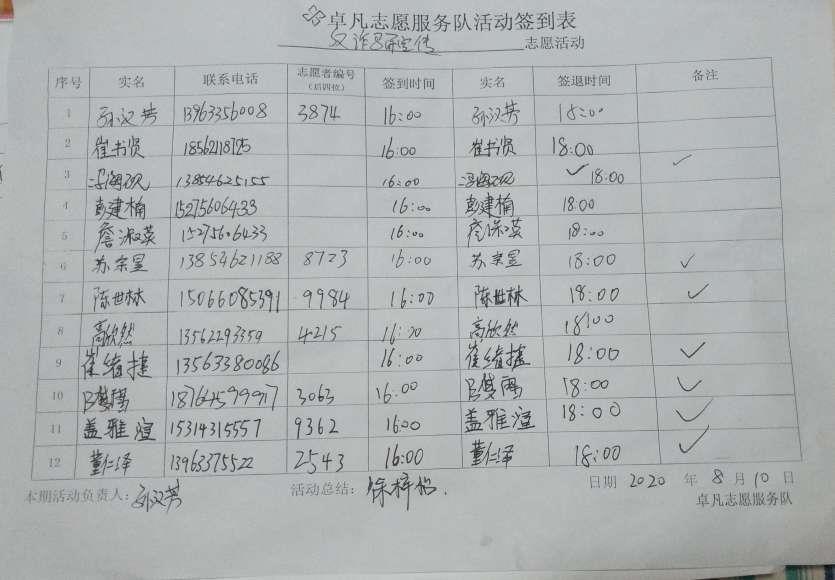 卓凡志愿服务队活动签到表
反诈骗宣传 志愿活动
序号 实名 联系电话 志愿者编号（后四位） 签到时间 实名 签退时间 备注
1 孙汉芳 13963356008 3874 16:00 孙汉芳 18:00
2 崔书贤 18562118795 16:00 崔书贤 18:00 ✓
3 13854625155 16:00 ✓ 18:00
4 彭建楠 15275606433 16:00 彭建楠 18:00
5 詹淑英 15275606433 16:00 詹淑英 18:00
6 苏宗昱 13854621188 8723 16:00 苏宗昱 18:00 ✓
7 陈世林 15066085391 9984 16:00 陈世林 18:00 ✓
8 高欣然 13562293359 4215 16:00 高欣然 18:00
9 崔绪捷 13563380086 16:00 崔绪捷 18:00 ✓
10 18764599917 3063 16:00 18:00 ✓
11 盖雅渲 15314315557 9362 16:00 盖雅渲 18:00 ✓
12 董仁泽 13963375522 2543 16:00 董仁泽 18:00 ✓
本期活动负责人：孙汉芳 活动总结： 日期 2020 年 8 月 10 日
卓凡志愿服务队